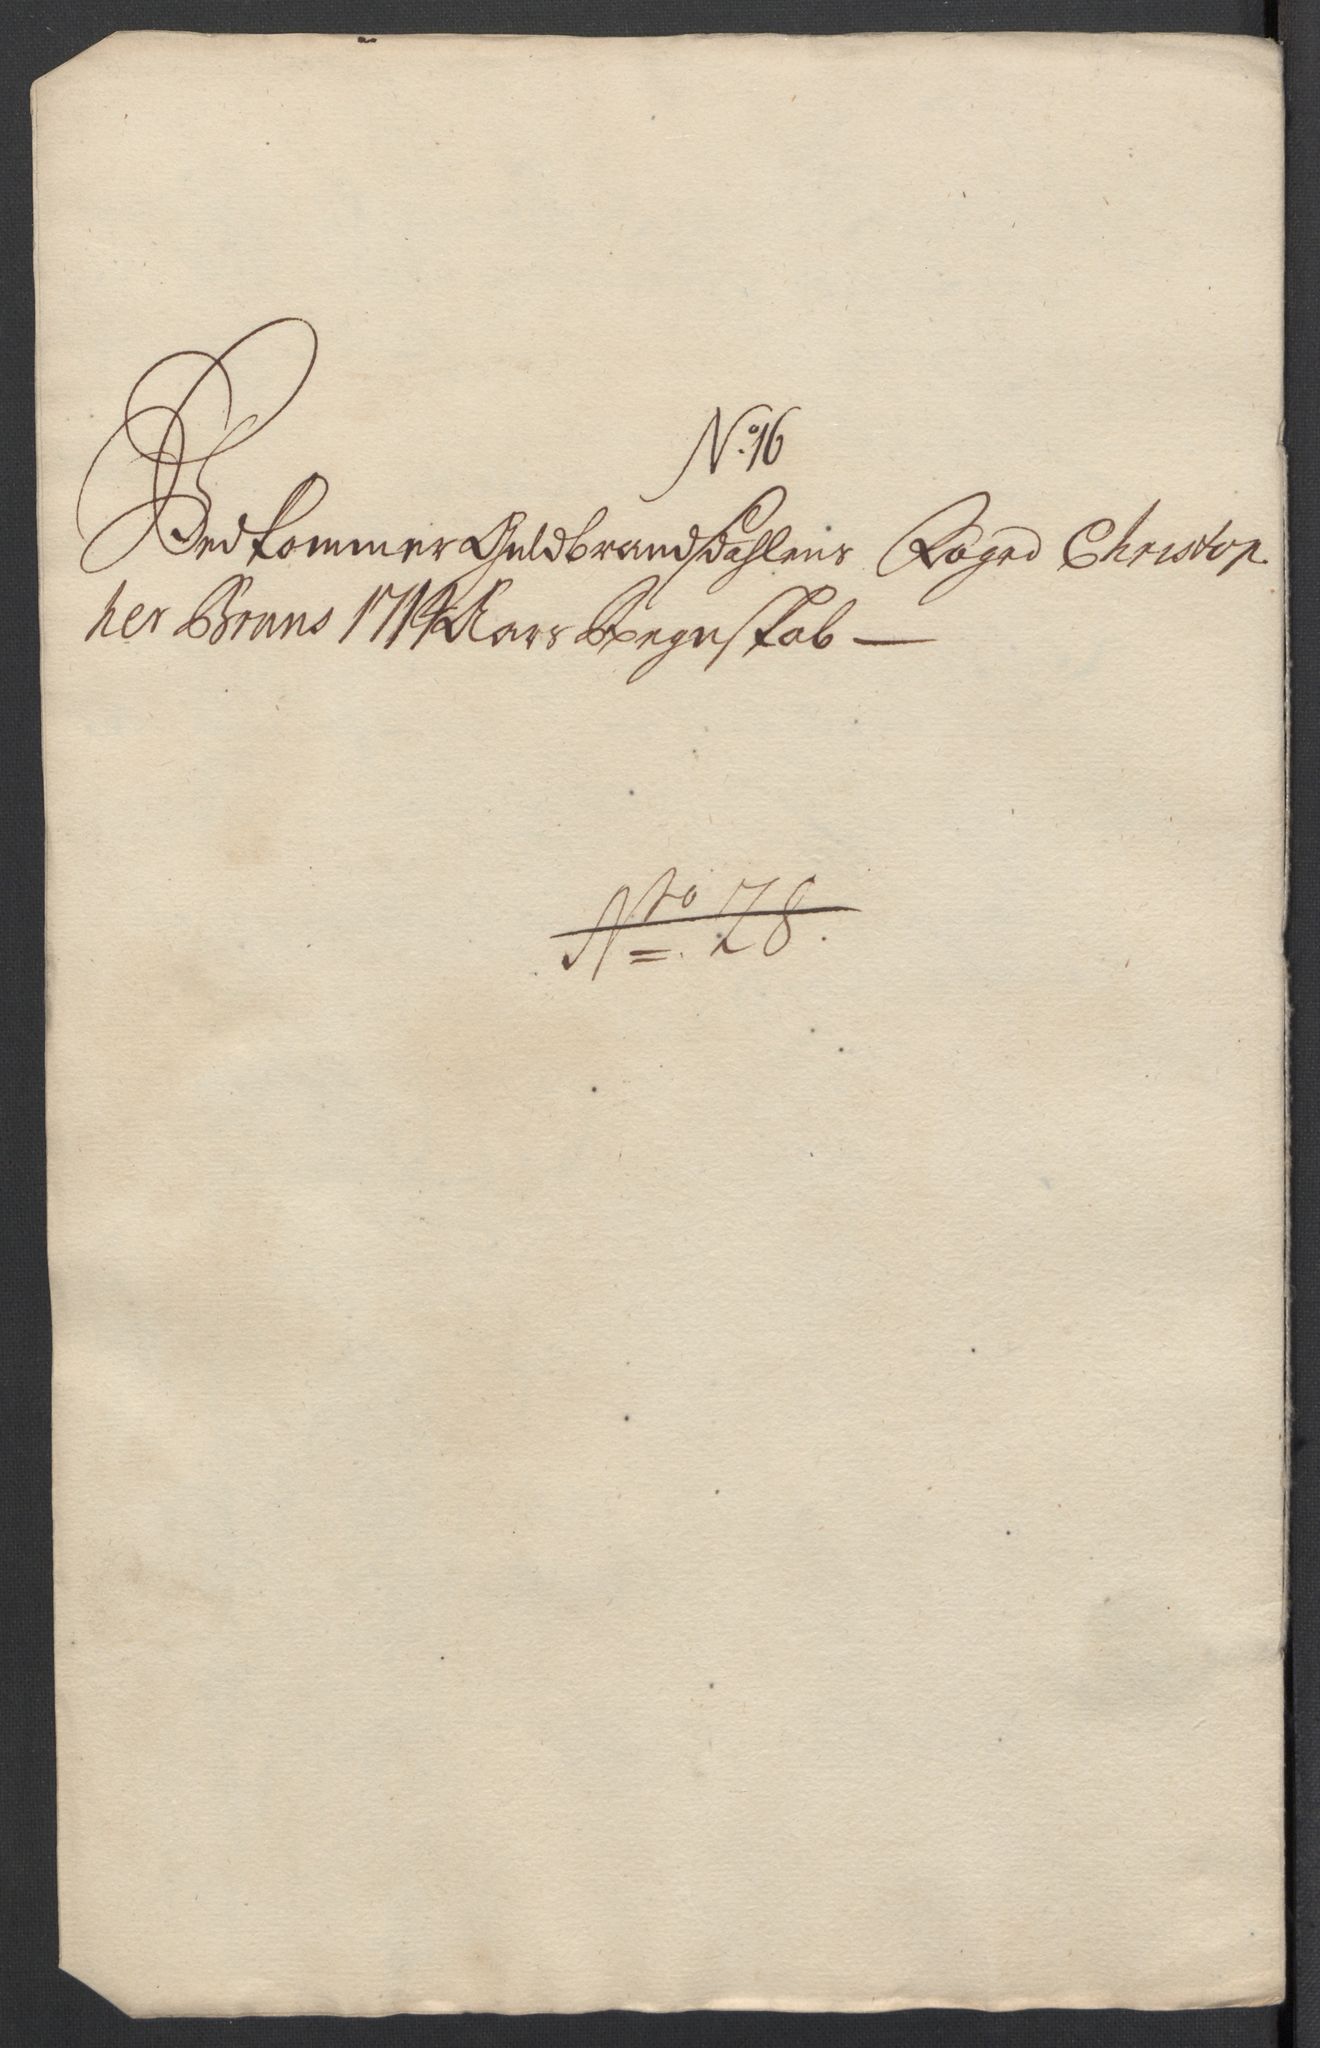 No. 16
Vedkommer Guldbrandsdahlens Foged Christop
her Bruns 1714 Aars Regnskab —
Nto 28.